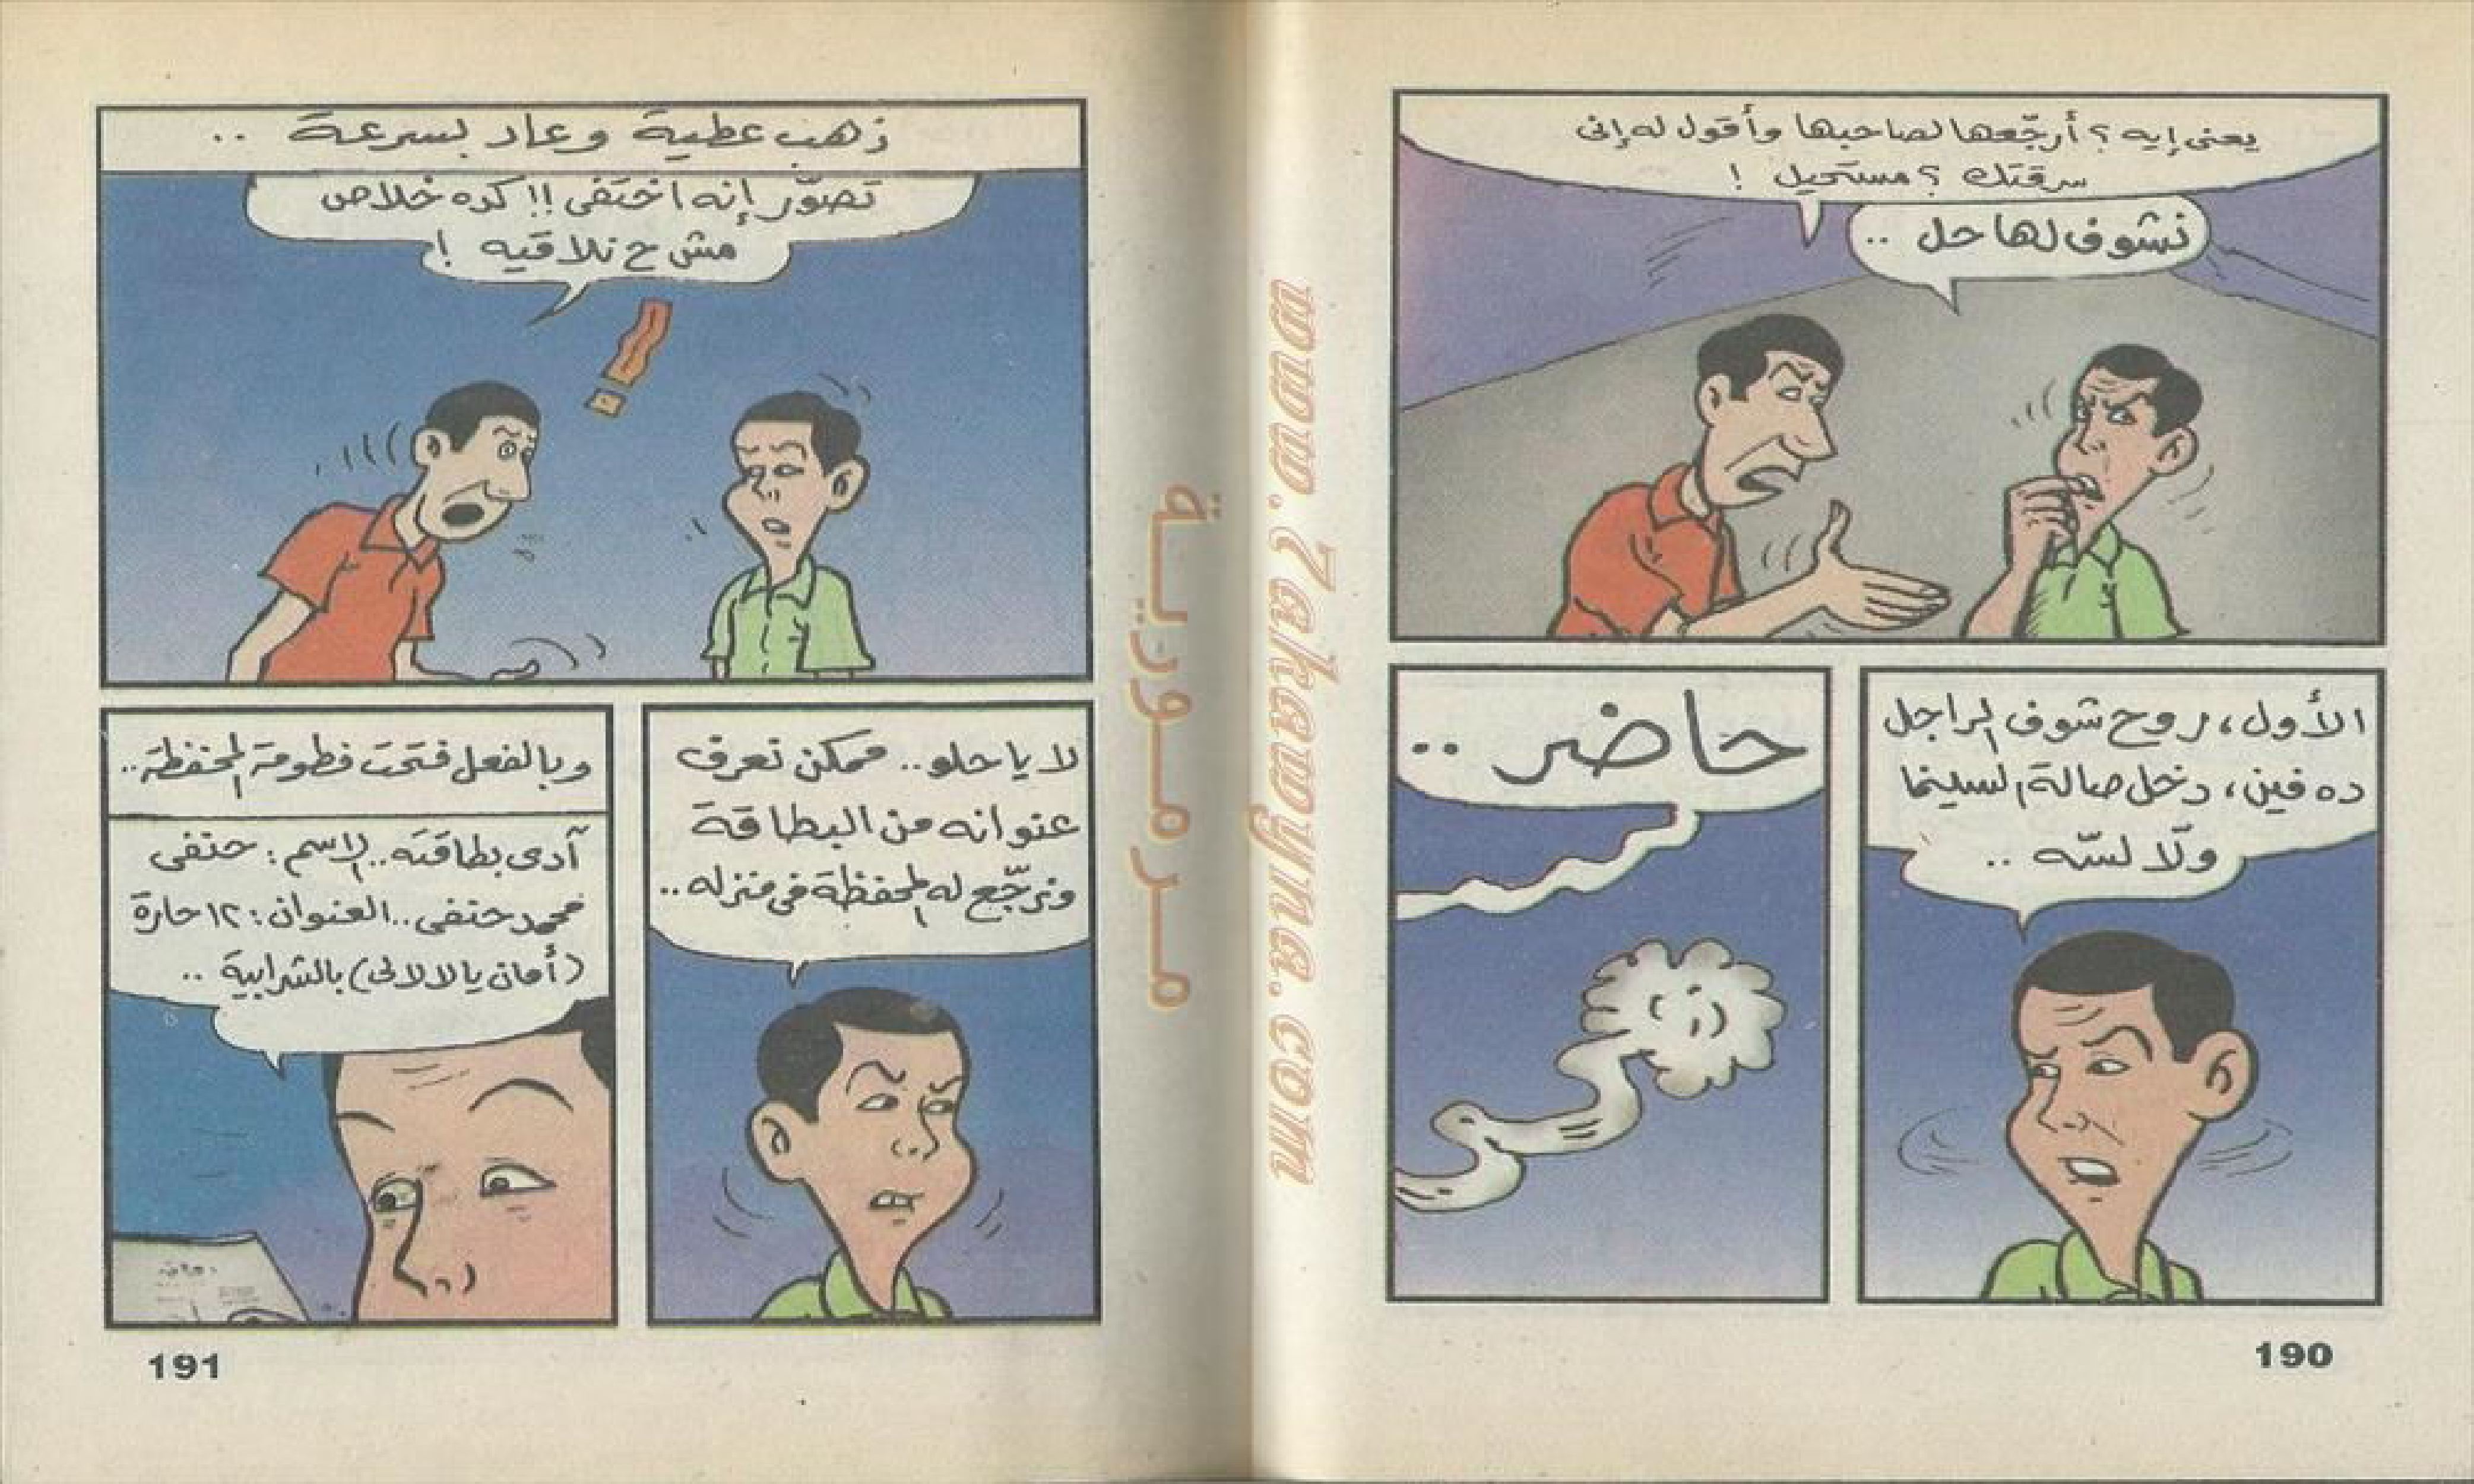 يعنى إيه ؟ أرجّعها لصاحبها وأقول له إنى
سرقتك ؟ مستحيل !
نشوف لها حل ..
الأول ، روح شوف الراجل
ده فين ، دخل صالة السينما
ولّا لسّه ..
حاضر ..
190
www.7akawyna.com
مرمورية
ذهب عطية وعاد بسرعة ..
تصوّر إنه اختفى !! كده خلاص
مش ح نلاقيه !
لا يا حلو .. ممكن نعرف
عنوانه من البطاقة
ونرجّع له المحفظة فى منزله ..
وبالفعل فتحت فطومة المحفظة ..
آدى بطاقته .. الاسم : حنفى
محمد حنفى .. العنوان : ١٢ حارة
(أمان يا لالالى) بالشرابية ..
بطاقة
191